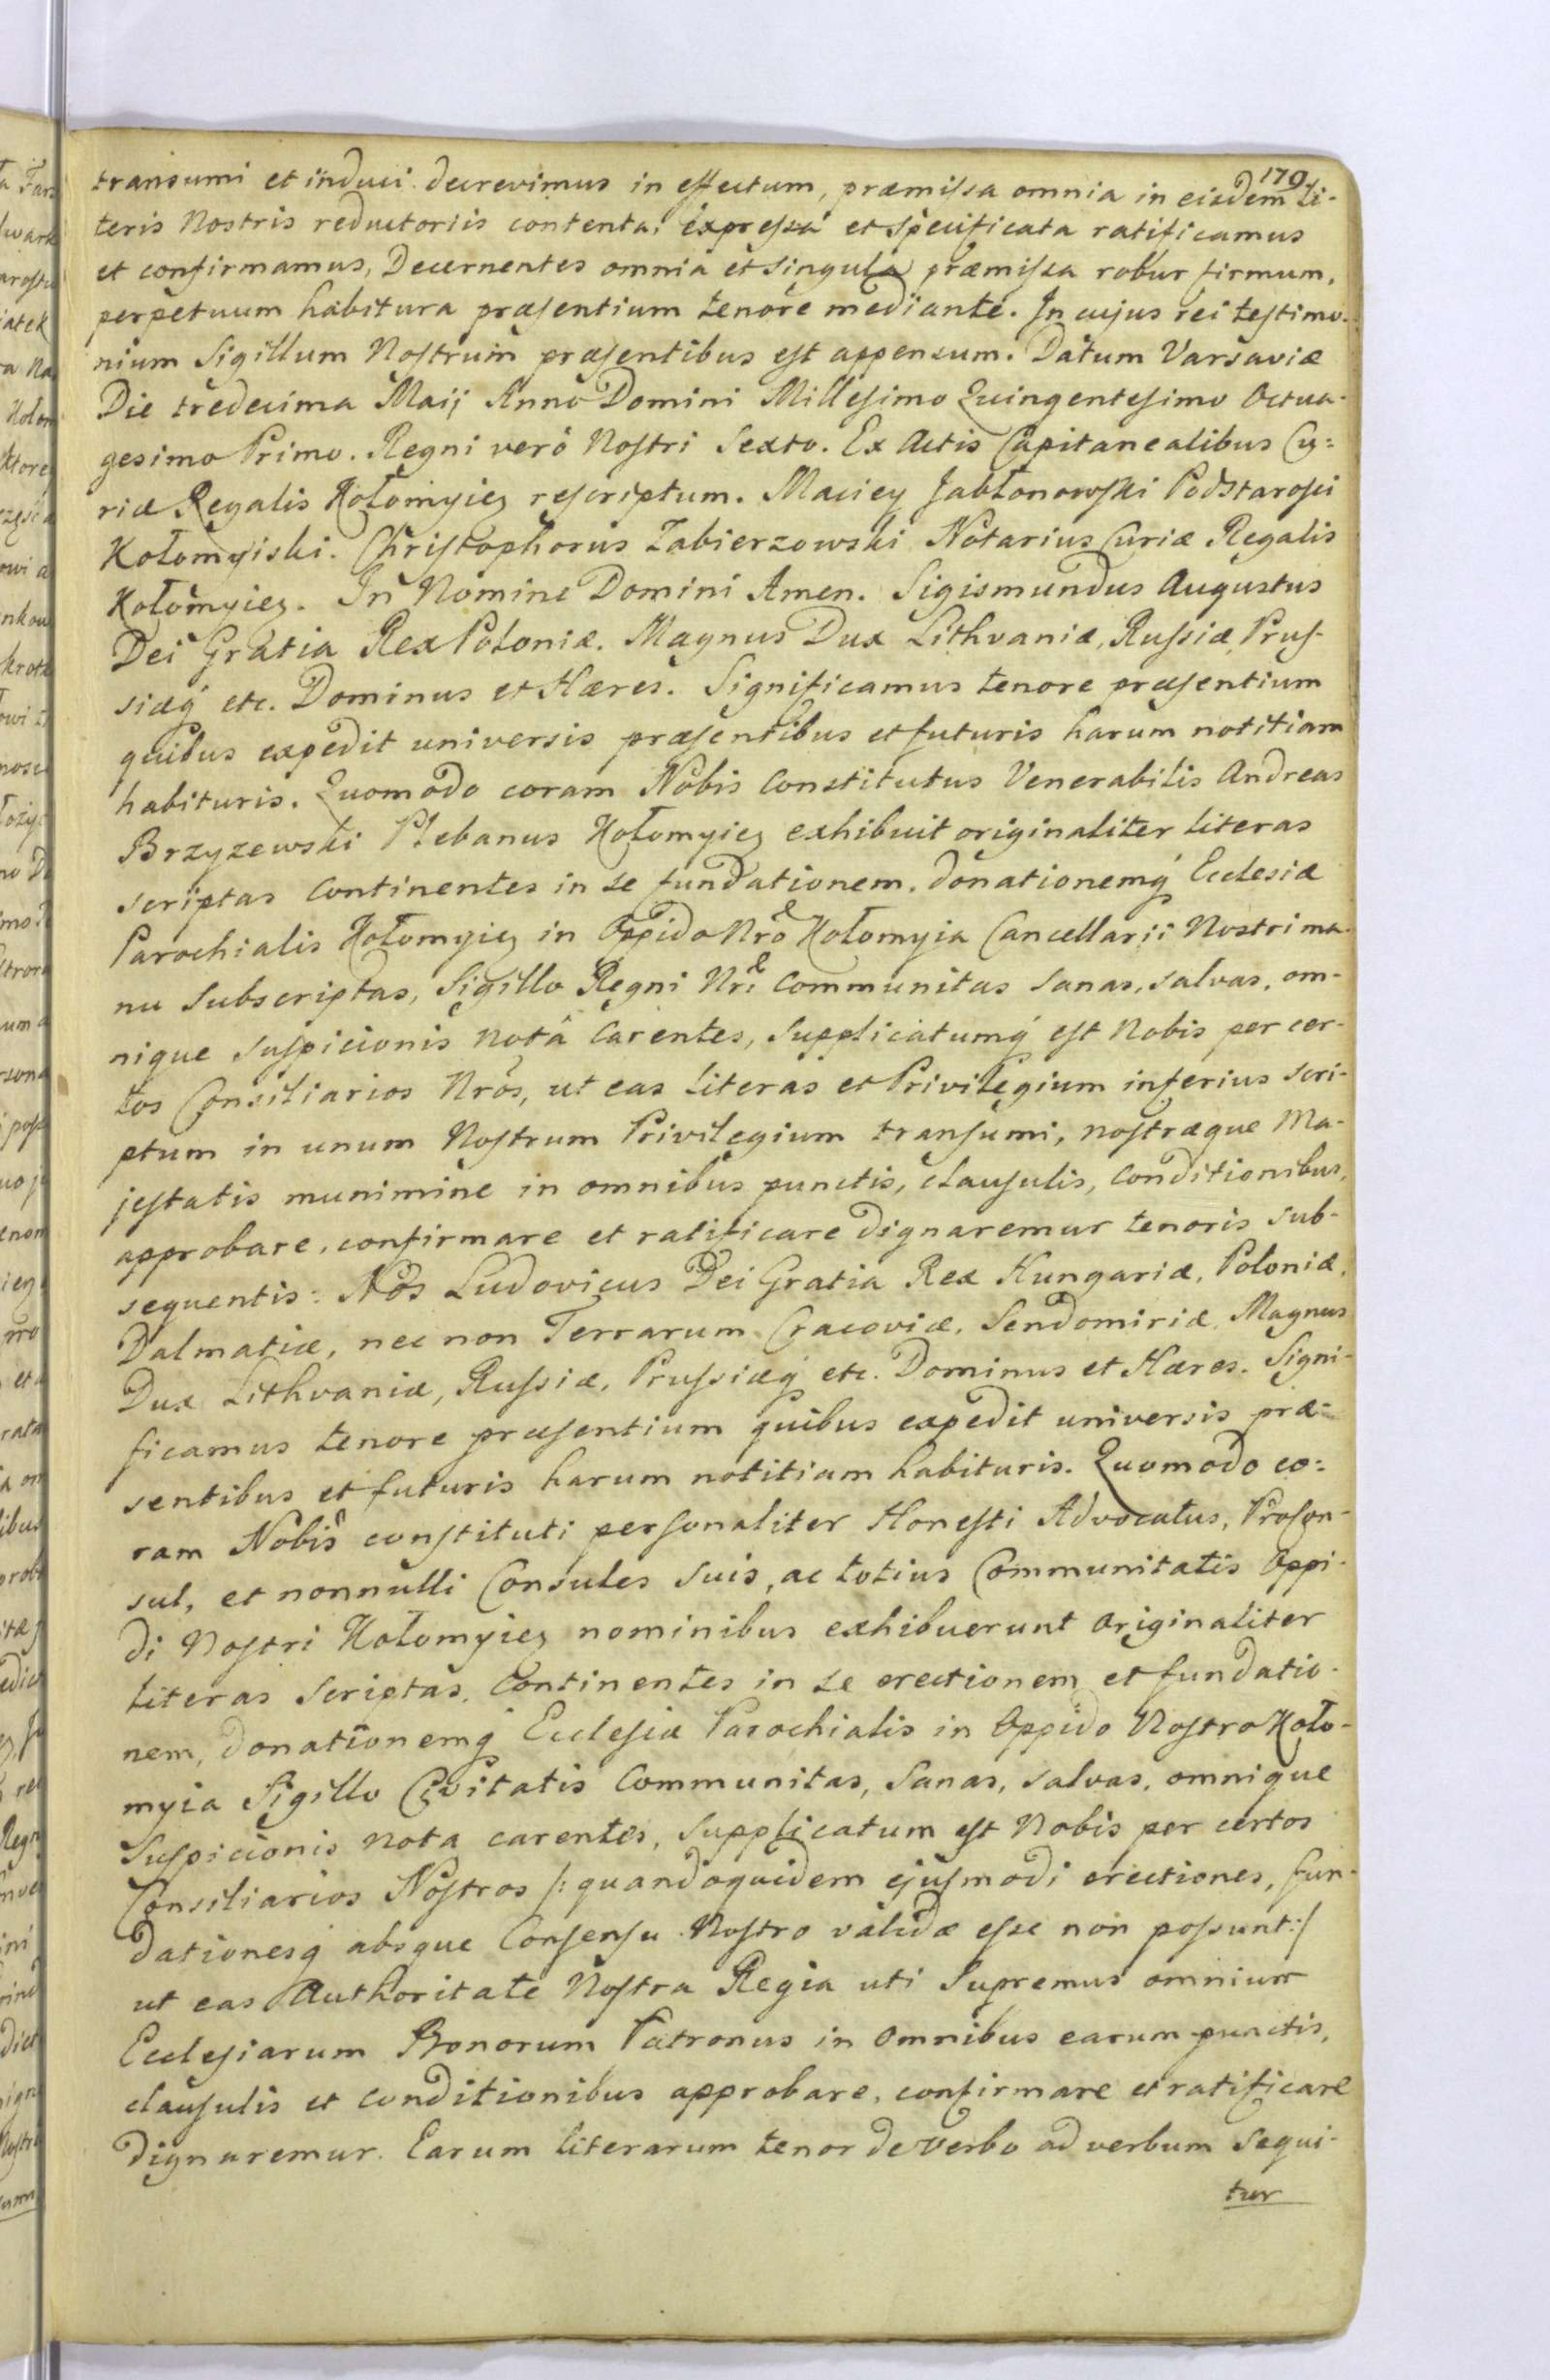 179.
transumi et induci decrevimus in effectum, præmiſsa omnia in eisdem Li-
teris Nostris reductoriis contenta, expreſsa et specificata ratificamus
et confirmamus, Decernentes omnia et singula præmiſsa robur firmum,
perpetuum habitura præſentium tenore mediante. In cujus rei teſtimo-
nium Sigillum Noſtrum præſentibus eſt appensum. Datum Varsaviæ
Die tredecima Maij Anno Domini Milleſimo Quingenteſimo Octua-
gesimo Primo. Regni verò Noſtri Sexto. Ex Actis Capitanealibus Cu=
riæ Regalis Kołomyień reſcriptum. Maciey Jabłonowſki Podstaroſci
Kołomyiski. Chriſtophorus Zabierzowski Notarius Curiæ Regalis
Kołomyień. In Nomine Domini Amen. Sigismundus Augustus
Dei Gratia Rex Poloniæ. Magnus Dux Lithvaniæ, Ruſsiæ, Pruſ-
siæq́ etc. Dominus et Hæres. Significamus tenore præſentium
quibus expedit universis præſentibus et futuris harum notitiam
habituris. Quomodo coram Nobis Constitutus Venerabilis Andreas
Brzyzewski Plebanus Kołomyień exhibuit originaliter literas
scriptas Continentes in se fundationem, donationemq́ Ecclesiæ
Parochialis Kołomyień in Oppido Nrõ Kołomyia Cancellarii Nostri ma-
nu Subscriptas, Sigillo Regni Nri Communitas Sanas, salvas, om-
nique suſpicionis notâ Carentes, Supplicatumq́ eſt Nobis per cer-
tos Consiliarios Nrõs, ut eas literas et Privilegium inferius scri-
ptum in unum Noſtrum Privilegium tranſumi, noſtræque Ma-
jeſtatis munimine in omnibus punctis, clauſulis, Conditionibus,
approbare, confirmare et ratificare dignaremur tenoris sub-
sequentis: Nos Ludovicus Dei Gratia Rex Hungariæ, Poloniæ,
Dalmatiæ, nec non Terrarum Cracoviæ, Sendomiriæ, Magnus
Dux Lithvaniæ, Ruſsiæ, Pruſsiæq́ etc. Dominus et Hæres. Signi-
ficamus tenore præſentium quibus expedit universis præ-
sentibus et futuris harum notitiam habituris. Quomodo co=
ram Nobis conſtituti perſonaliter Honeſti Advocatus, Procon-
sul, et nonnulli Consules suis, ac totius Communitatis Oppi-
di Noſtri Kołomyień nominibus exhibuerunt originaliter
literas Scriptas, Continentes in se erectionem et fundatio-
nem, donationemq́ Eccleſiæ Parochialis in Oppido Noſtro Koło-
myia Sigillo Civitatis Communitas, Sanas, salvas, omnique
Suſpicionis nota carentes, Supplicatum eſt Nobis per certos
Consiliarios Noſtros /: quandoquidem ejuſmodi erectiones, fun-
dationesq́ absque Conſenſu Noſtro validæ eſse non poſsunt :/
ut eas Authoritate Noſtra Regia uti Supremus omnium
Eccleſiarum Bonorum Patronus in omnibus earum punctis,
clauſulis et conditionibus approbare, confirmare et ratificare
dignaremur. Earum literarum tenor de verbo ad verbum sequi-
tur